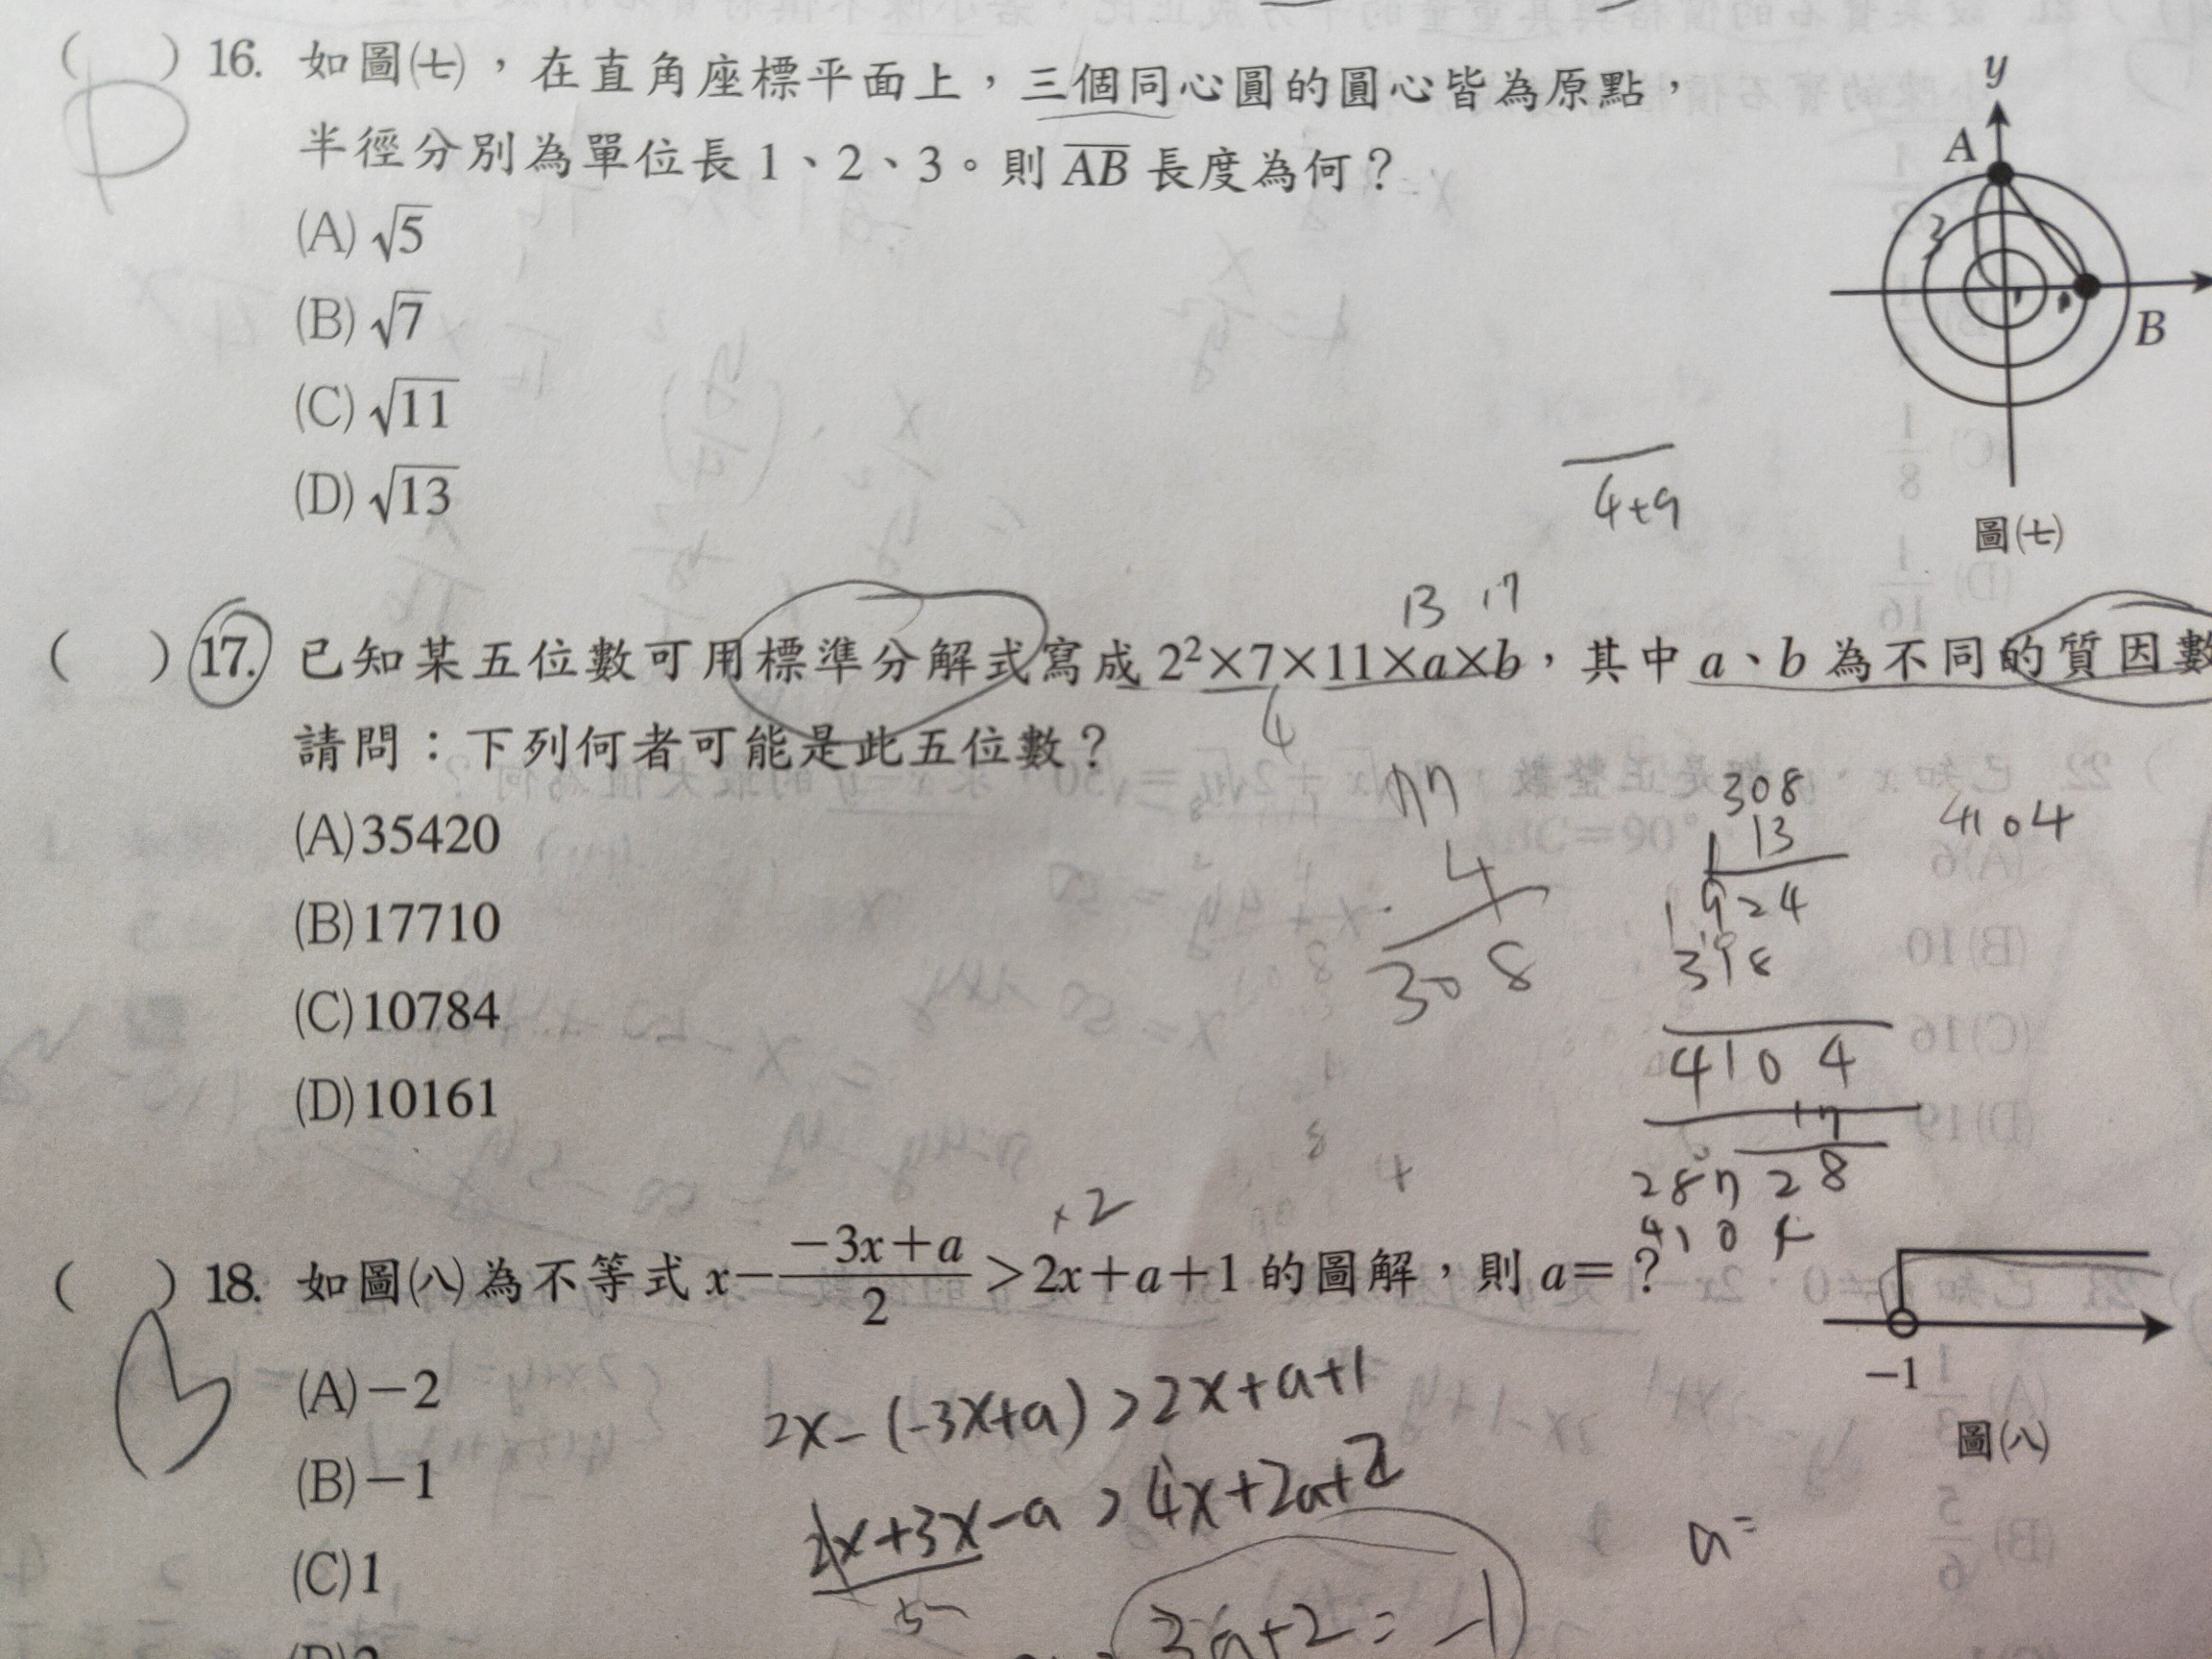 ( ) 16. 如圖㈦，在直角座標平面上，三個同心圓的圓心皆為原點，
D
半徑分別為單位長1、2、3。則AB長度為何？
(A)√5
(B)√7
(C)√11
(D)√13
y
A
3
B
圖㈦
4+9
13 17
( ) 17. 已知某五位數可用標準分解式寫成2²×7×11×a×b，其中a、b為不同的質因數
4
請問：下列何者可能是此五位數？
(A)35420
(B)17710
(C)10784
(D)10161
77
4
308
308
13
924
4104
17
28728
4104
4104
( ) 18. 如圖㈧為不等式x−(−3x+a)/2>2x+a+1的圖解，則a=？
×2
(A)−2
(B)−1
(C)1
−1
圖㈧
2x-(-3x+a)>2x+a+1
2x+3x-a>4x+2a+2
5
3a+2=-1
a=